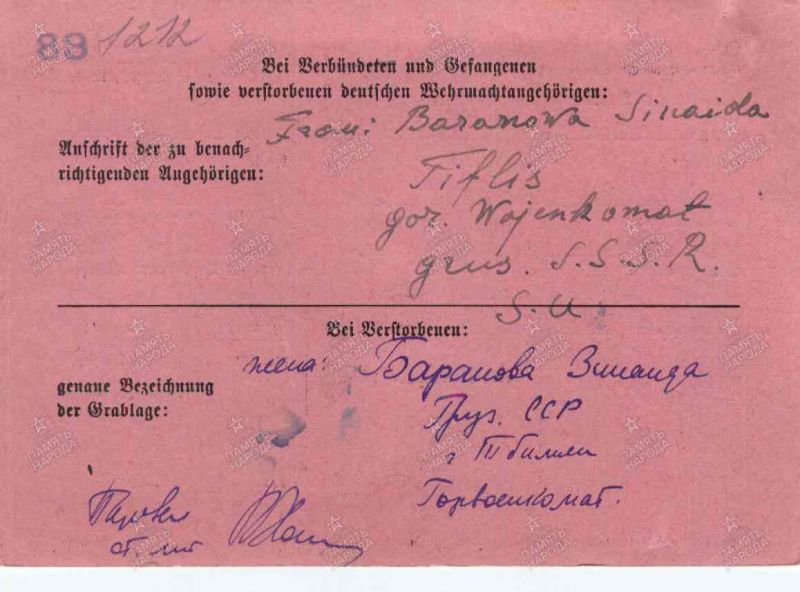 88 1212
Bei Verbündeten und Gefangenen
sowie verstorbenen deutschen Wehrmachtangehörigen:
Frau: Baranowa Sinaida
Anschrift der zu benach-
richtigenden Angehörigen:
Tiflis
gor. Wojenkomat
grus. S.S.S.R.
S.U.
Bei Verstorbenen:
жена: Баранова Зинаида
genaue Bezeichnung
der Grablage:
Груз. ССР
г Тбилиси
Горвоенкомат.
ст. лит
ПАМЯТЬ
НАРОДА